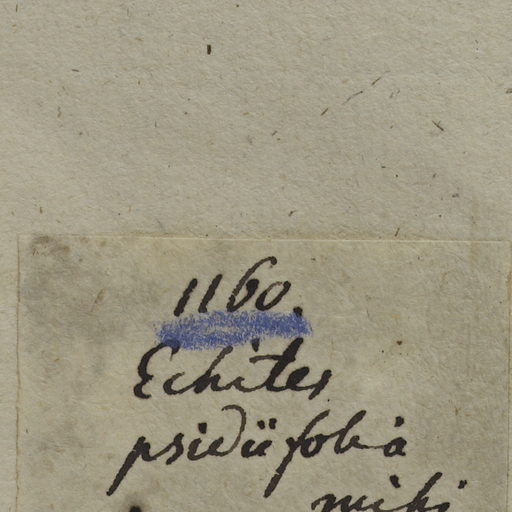 1160.
Echites
psidiifolia
mihi